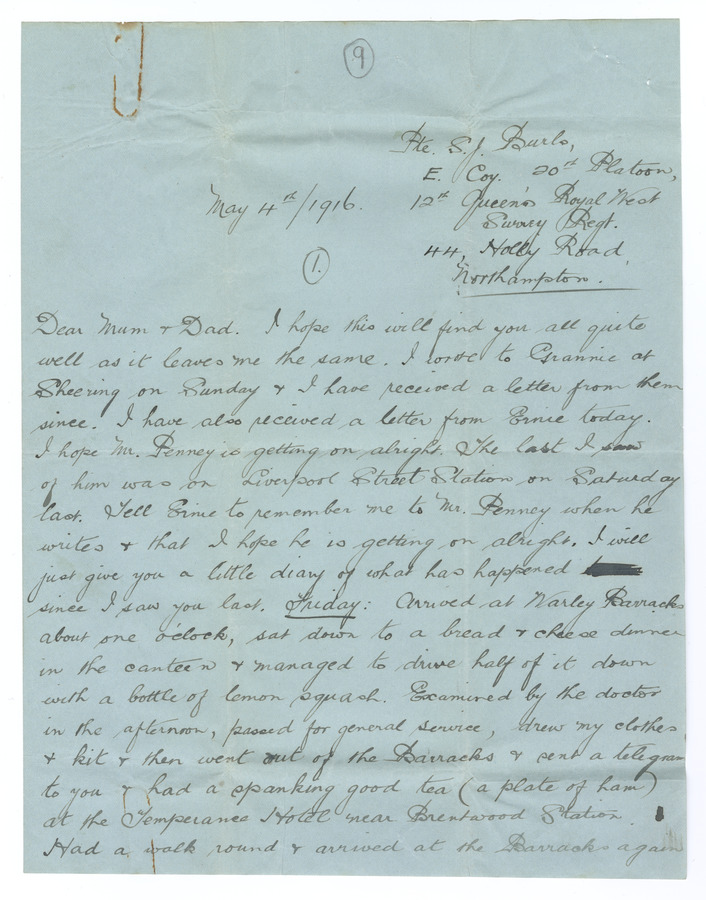 9
Pte. S. J. Burls,
E. Coy. 20th Platoon,
May 4th/1916. 12th Queen's Royal West
Surrey Regt.
1. 44, Holly Road,
Northampton.
Dear Mum & Dad. I hope this will find you all quite
well as it leaves me the same. I wrote to Grannie at
Sheering on Sunday & I have received a letter from them
since. I have also received a letter from Ernie today.
I hope Mr. Penney is getting on alright. The last I saw
of him was on Liverpool Street Station on Saturday
last. Tell Ernie to remember me to Mr. Penney when he
writes & that I hope he is getting on alright. I will
just give you a little diary of what has happened
since I saw you last. Friday: Arrived at Warley Barracks
about one o'clock, sat down to a bread & cheese dinner
in the canteen & managed to drive half of it down
with a bottle of lemon squash. Examined by the doctor
in the afternoon, passed for general service, drew my clothes
& kit & then went out of the Barracks & sent a telegram
to you & had a spanking good tea (a plate of ham)
at the Temperance Hotel near Brentwood Station.
Had a walk round & arrived at the Barracks again